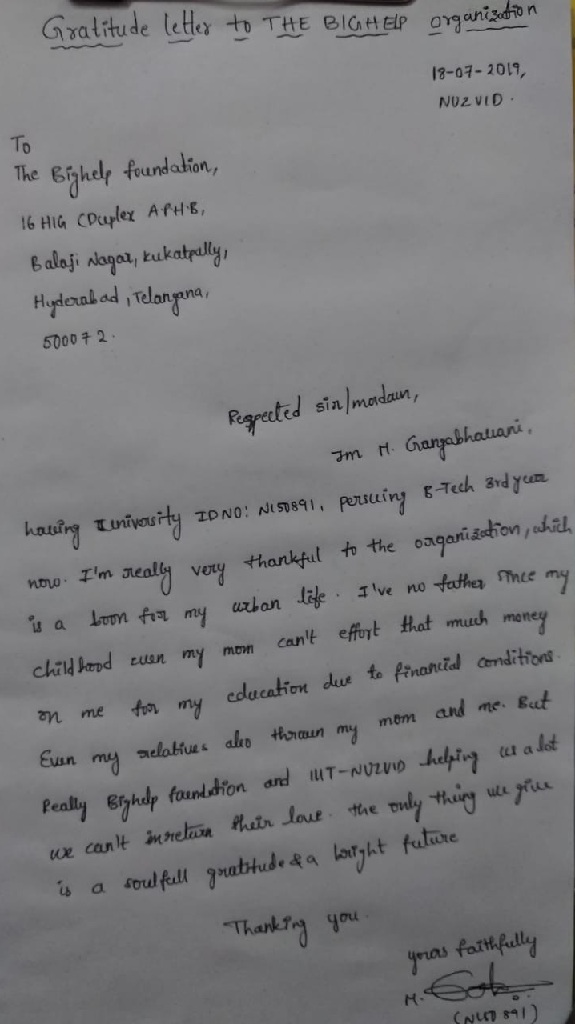 Gratitude letter to THE BIGHELP organization
18-07-2019,
NUZVID.
To
The Bighelp foundation,
16 HIG CDuplex A.P.H.B,
Balaji Nagar, kukatpally,
Hyderabad, Telangana,
500072.
Respected sir/madam,
Im M. Gangabhavani,
having University IDNO: N150891, persuing B-Tech 3rd year
now. I'm really very thankful to the organization, which
is a boon for my urban life. I've no father since my
childhood even my mom can't effort that much money
on me for my education due to financial conditions.
Even my relatives also thrown my mom and me. But
Really Bighelp foundation and IIIT-NUZVID helping us a lot
we can't inreturn their love. the only thing we give
is a soulfull gratitude & a bright future
Thanking you.
yours faithfully
M.
(N150891)